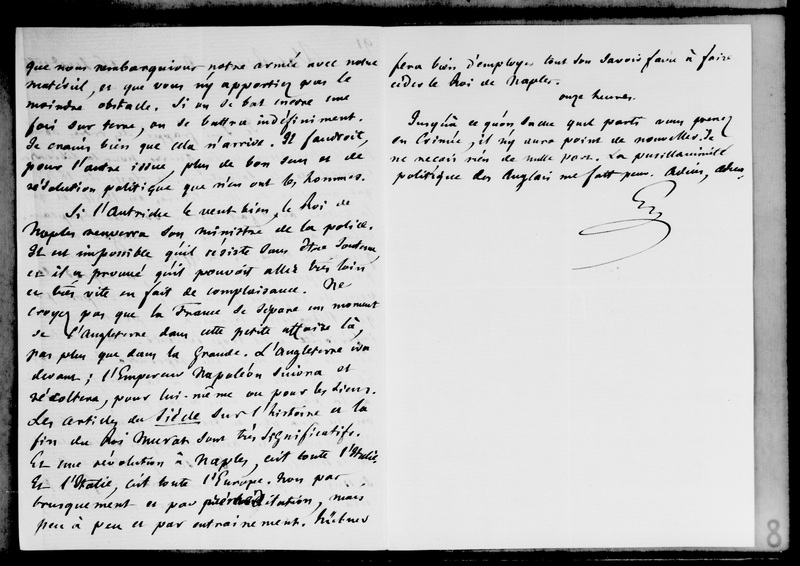 que nous rembarquions notre armée avec notre
matériel, et que vous n'y apportiez pas le
moindre obstacle. Si on se bat encore une
fois sur terre, on se battra indéfiniment.
Je crains bien que cela n'arrive. Il faudroit,
pour l'autre issue, plus de bon sens et de
résolution politique que n'en ont les hommes.
Si l'Autriche le veut bien, le Roi de
Naples renverra son ministre de la police.
Il est impossible qu'il résiste sans être soutenu,
et il a prouvé qu'il pouvoit aller très loin
et très vite en fait de complaisance. Ne
croyez pas que la France se sépare un moment
de l'Angleterre dans cette petite affaire là,
pas plus que dans la grande. L'Angleterre ira
devant ; l'Empereur Napoléon suivra et
récoltera, pour lui-même ou pour les siens.
Les articles du Siècle sur l'histoire et la
fin du Roi Murat sont très significatifs.
Et une révolution à Naples, c'est toute l'Italie.
Et l'Italie, c'est toute l'Europe. Non par
brusquement et par préméditation, mais
peu à peu et par entrainement. Hübner
fera bien d'employer tout son savoir faire à faire
céder le Roi de Naples.
onze heures.
Jusqu'à ce qu'on sache quel parti vous prenez
en Crimée, il n'y aura point de nouvelles. Je
ne reçois rien de nulle part. La pusillanimité
politique des Anglais me fait peur. Adieu, adieu.
8